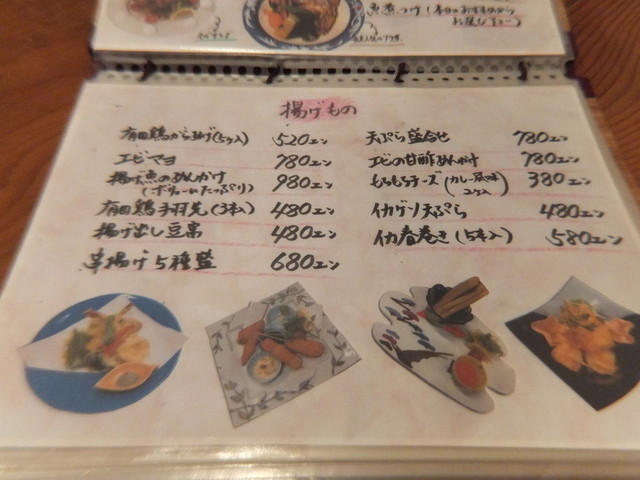 魚煮つけ(本日のおすすめから
お選び下さい)
揚げもの
有田鶏から揚げ(5ヶ入) 520エン
エビマヨ 780エン
揚げ魚のあんかけ 980エン
(ボリュームたっぷり)
有田鶏手羽先(3本入) 480エン
揚げ出し豆腐 480エン
串揚げ5種盛 680エン
天ぷら盛合せ 780エン
エビの甘酢あんかけ 780エン
もちもちチーズ(カレー風味 2ヶ入) 380エン
イカゲソ天ぷら 480エン
イカ春巻き(5本入) 580エン